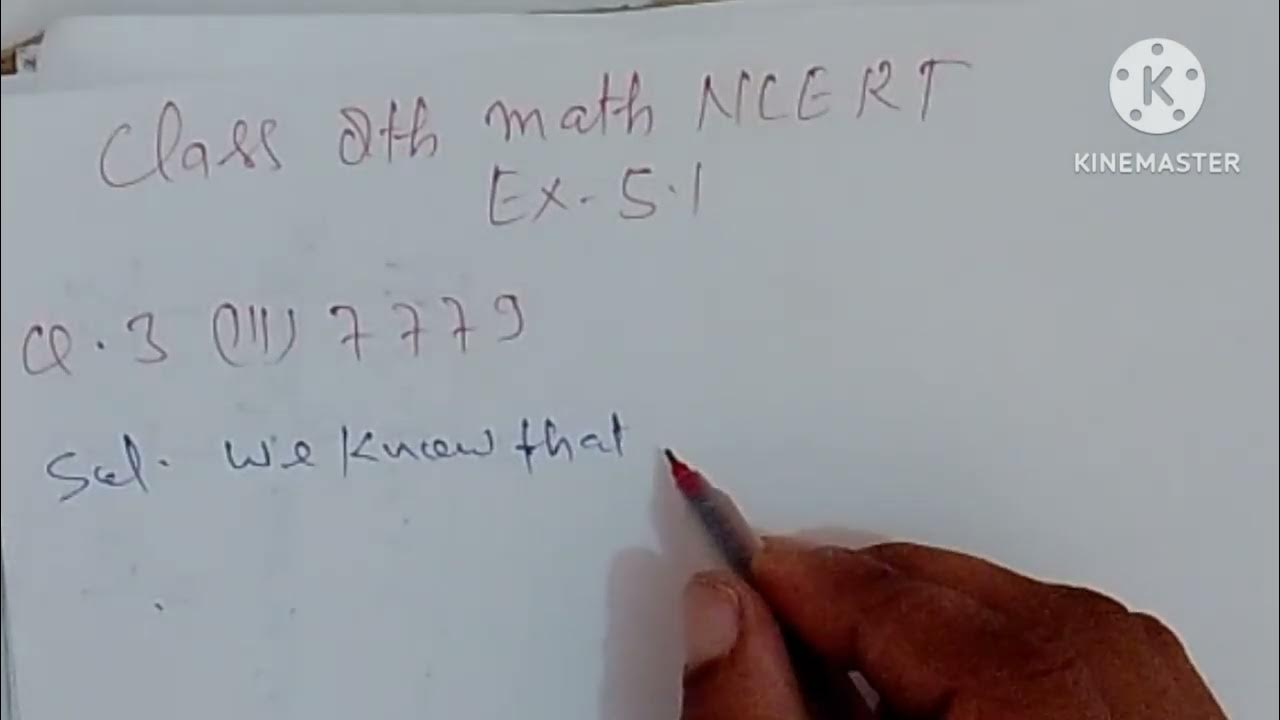 Class 8th math NCERT
KINEMASTER
Ex. 5.1
Q. 3 (III) 7779
Sol. We know that